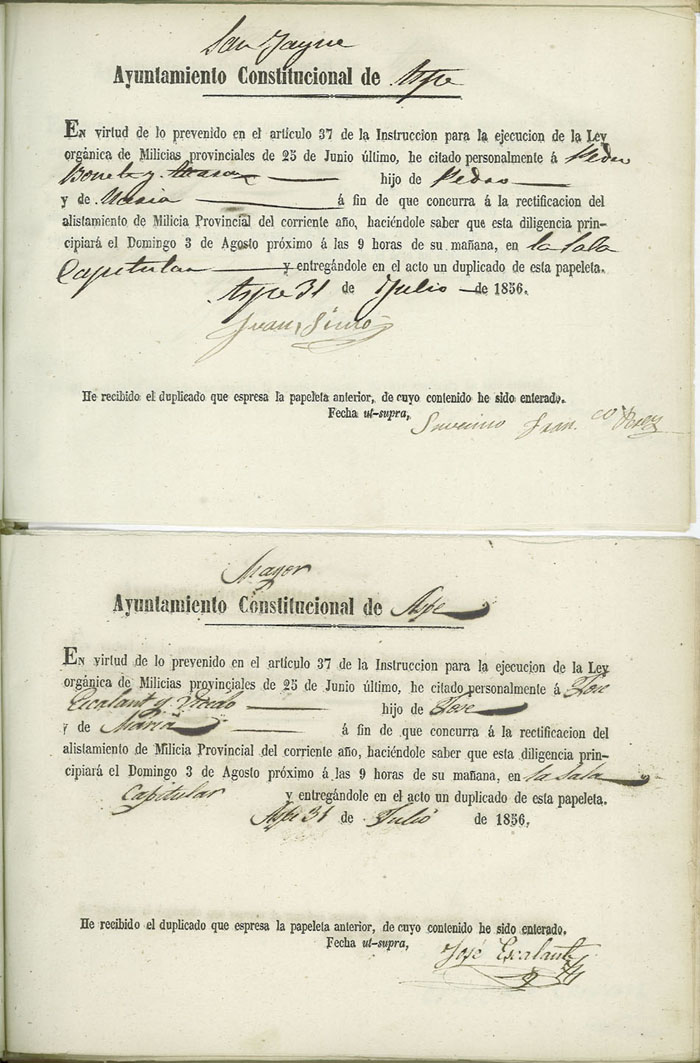 San Jayme
Ayuntamiento Constitucional de Aspe
EN virtud de lo prevenido en el artículo 37 de la Instruccion para la ejecucion de la Ley
orgánica de Milicias provinciales de 25 de Junio último, he citado personalmente á Pedro
Bonete y hijo de Pedro
y de Maria á fin de que concurra á la rectificacion del
alistamiento de Milicia Provincial del corriente año, haciéndole saber que esta diligencia prin-
cipiará el Domingo 3 de Agosto próximo á las 9 horas de su mañana, en la Sala
Capitular y entregándole en el acto un duplicado de esta papeleta.
Aspe 31 de Julio de 1856.
Juan Simó
He recibido el duplicado que espresa la papeleta anterior, de cuyo contenido he sido enterado.
Fecha ut-supra,
Mayor
Ayuntamiento Constitucional de Aspe
EN virtud de lo prevenido en el artículo 37 de la Instruccion para la ejecucion de la Ley
orgánica de Milicias provinciales de 25 de Junio último, he citado personalmente á Jose
Escalant y hijo de Jose
y de Maria á fin de que concurra á la rectificacion del
alistamiento de Milicia Provincial del corriente año, haciéndole saber que esta diligencia prin-
cipiará el Domingo 3 de Agosto próximo á las 9 horas de su mañana, en la Sala
Capitular y entregándole en el acto un duplicado de esta papeleta.
Aspe 31 de Julio de 1856.
He recibido el duplicado que espresa la papeleta anterior, de cuyo contenido he sido enterado.
Fecha ut-supra,
José Escalant